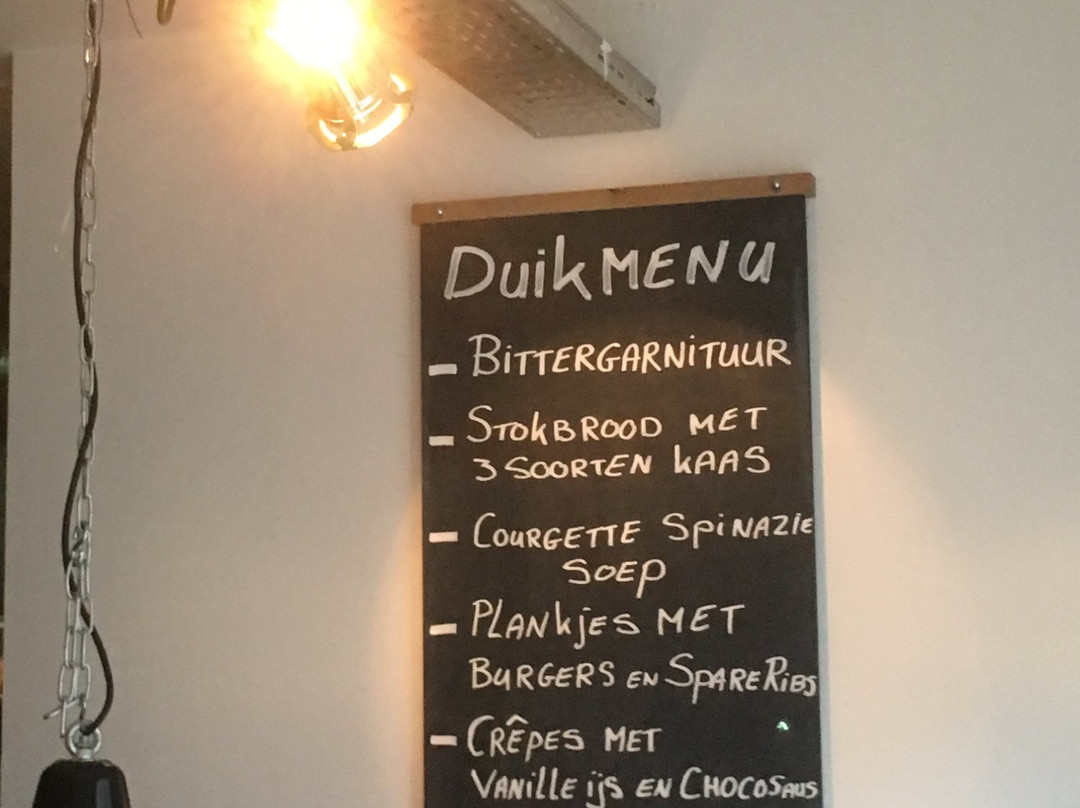 DuikMENU
- BITTERGARNITUUR
- STOKBROOD MET
3 SOORTEN KAAS
- COURGETTE SPINAZIE
SOEP
- PLANKJES MET
BURGERS EN SPARERIBS
- CRÊPES MET
VANILLE IJS EN CHOCOSAUS